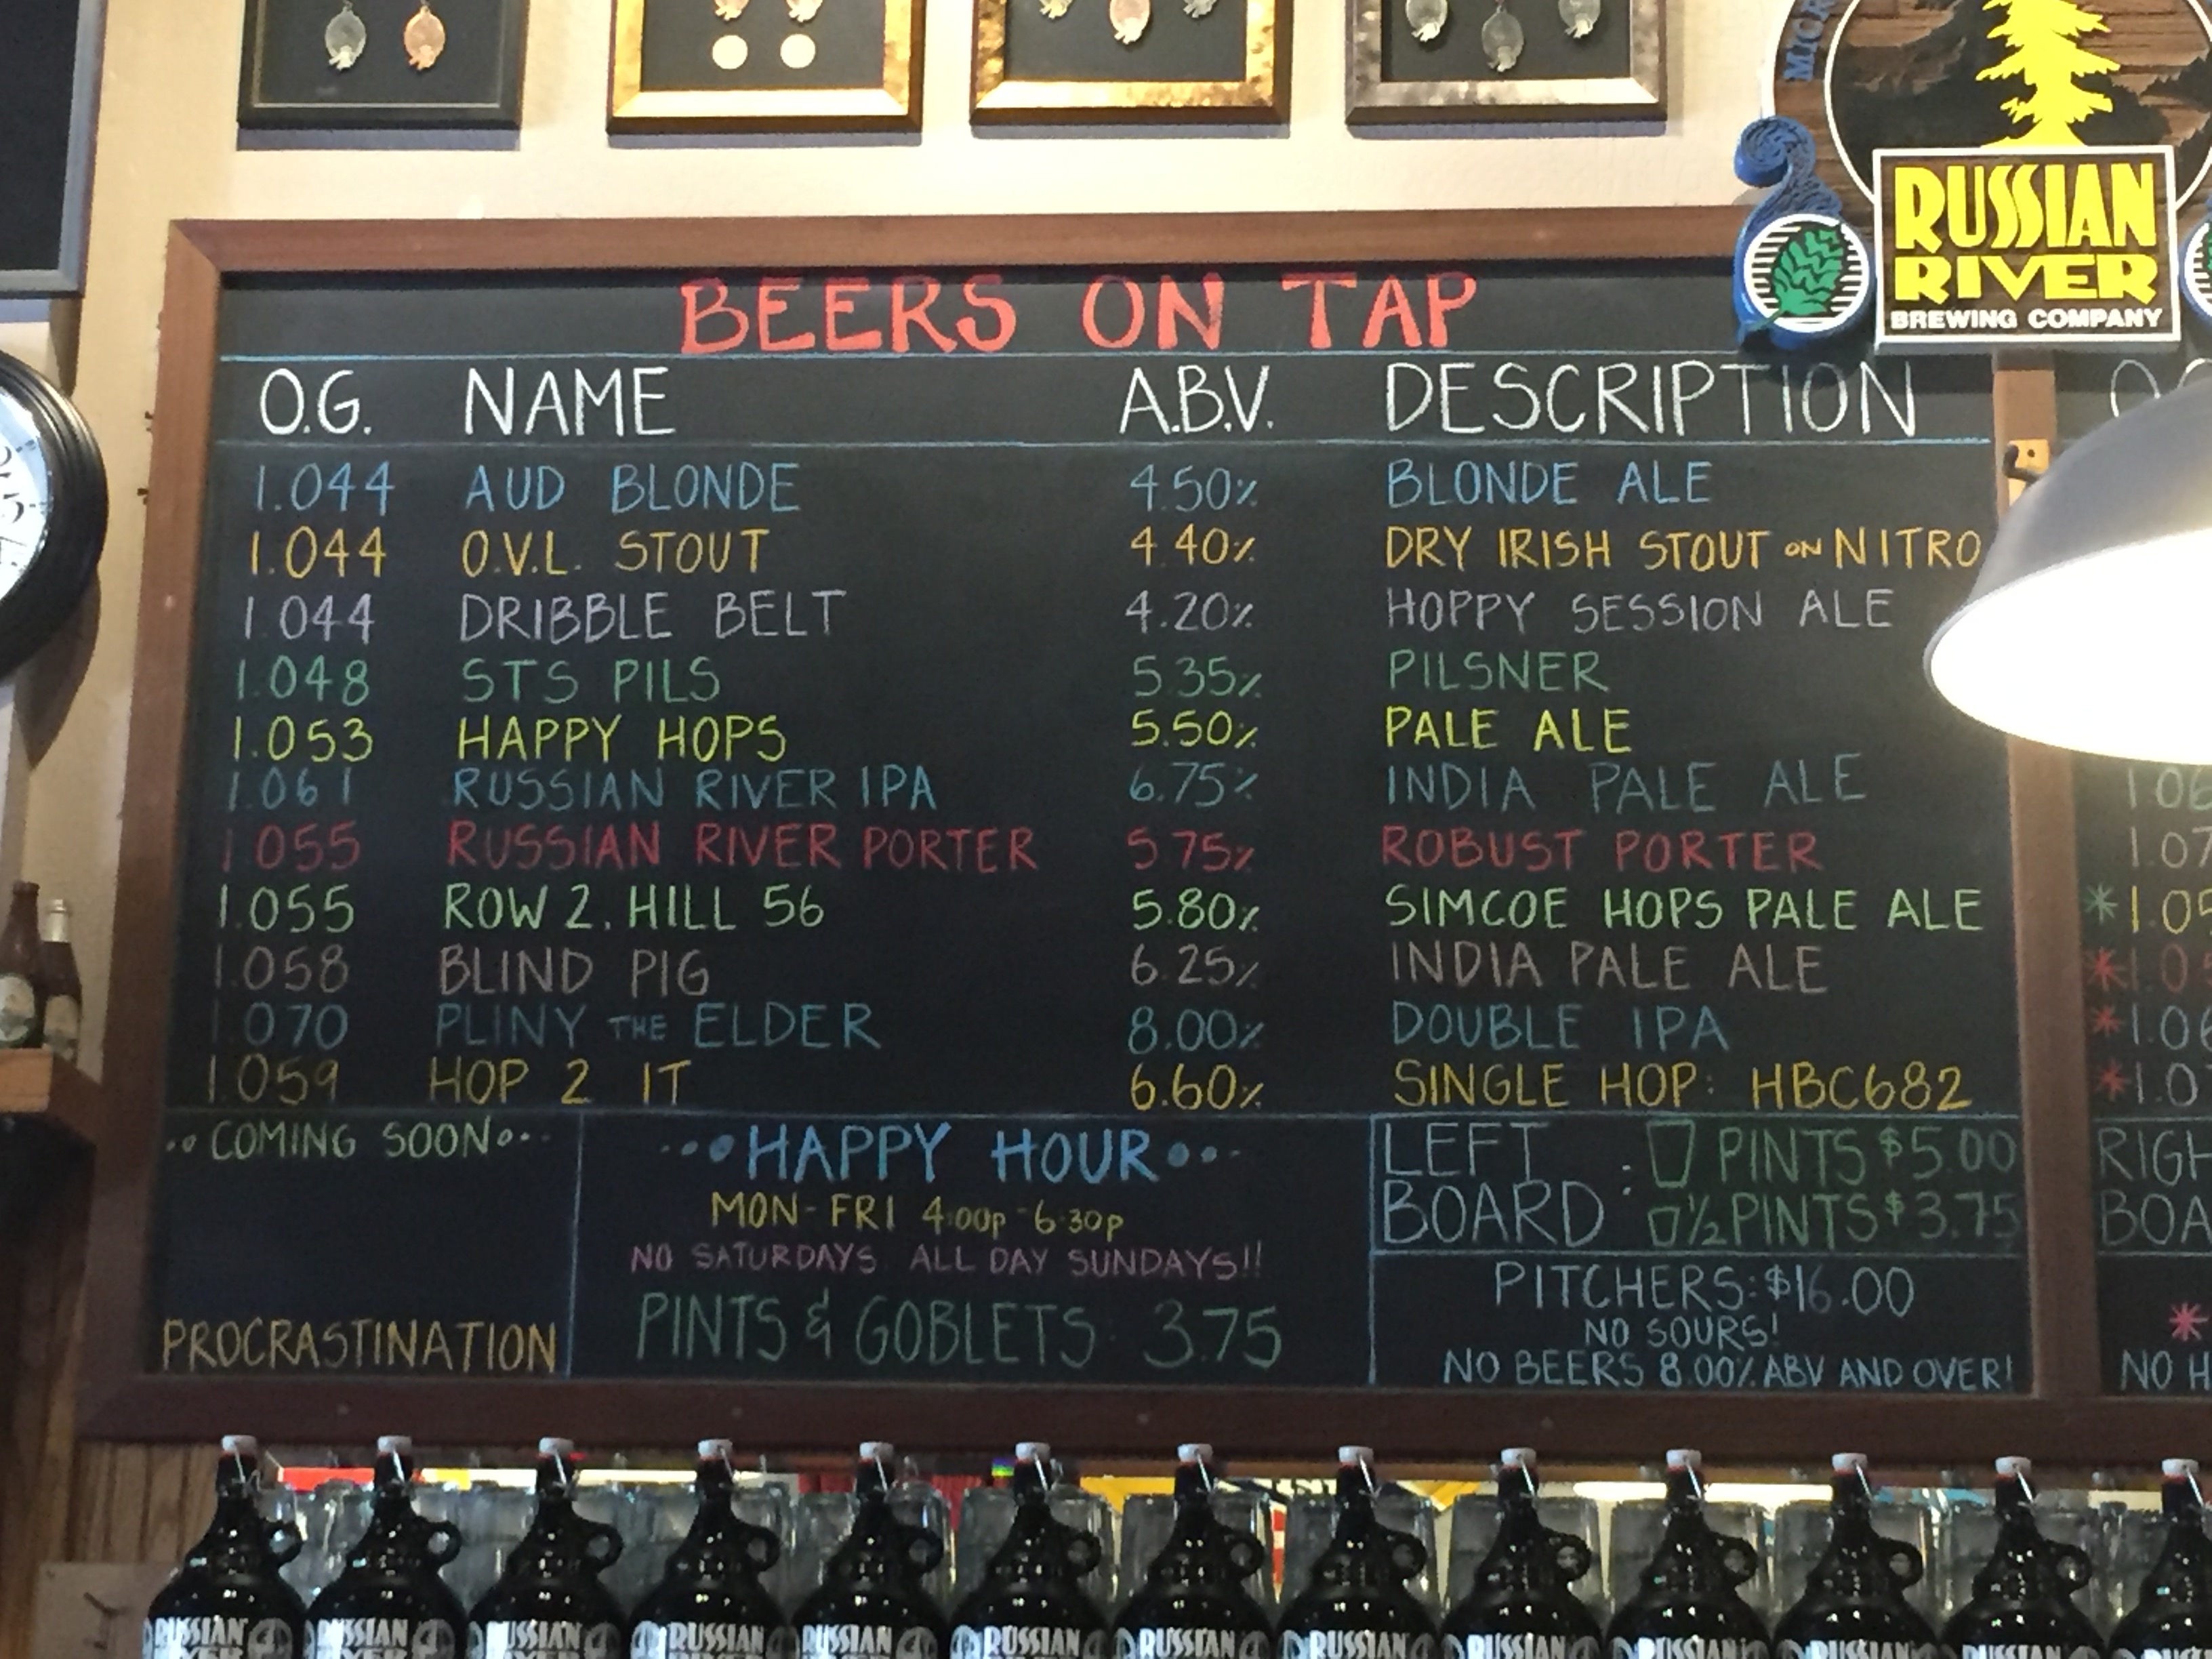 MICR
RUSSIAN
RIVER
BREWING COMPANY
BEERS ON TAP
O.G. NAME A.B.V. DESCRIPTION
1.044 AUD BLONDE 4.50% BLONDE ALE
1.044 O.V.L. STOUT 4.40% DRY IRISH STOUT ON NITRO
1.044 DRIBBLE BELT 4.20% HOPPY SESSION ALE
1.048 STS PILS 5.35% PILSNER
1.053 HAPPY HOPS 5.50% PALE ALE
1.061 RUSSIAN RIVER IPA 6.75% INDIA PALE ALE
1.055 RUSSIAN RIVER PORTER 5.75% ROBUST PORTER
1.055 ROW 2, HILL 56 5.80% SIMCOE HOPS PALE ALE
1.058 BLIND PIG 6.25% INDIA PALE ALE
1.070 PLINY THE ELDER 8.00% DOUBLE IPA
1.059 HOP 2 IT 6.60% SINGLE HOP: HBC682
COMING SOON
PROCRASTINATION
HAPPY HOUR
MON-FRI 4:00p-6:30p
NO SATURDAYS. ALL DAY SUNDAYS!!
PINTS & GOBLETS: 3.75
LEFT BOARD:
PINTS $5.00
½ PINTS $3.75
PITCHERS: $16.00
NO SOURS!
NO BEERS 8.00% ABV AND OVER!
1.06
1.07
*1.05
*1.05
*1.06
*1.07
RIGH
BOA
*
NO H
RUSSIAN
RUSSIAN
RUSSIAN
RUSSIAN
RUSSIAN
RUSSIAN
RUSSIAN
RUSSIAN
RUSSIAN
RUSSIAN
RUSSIAN
RUSSIAN